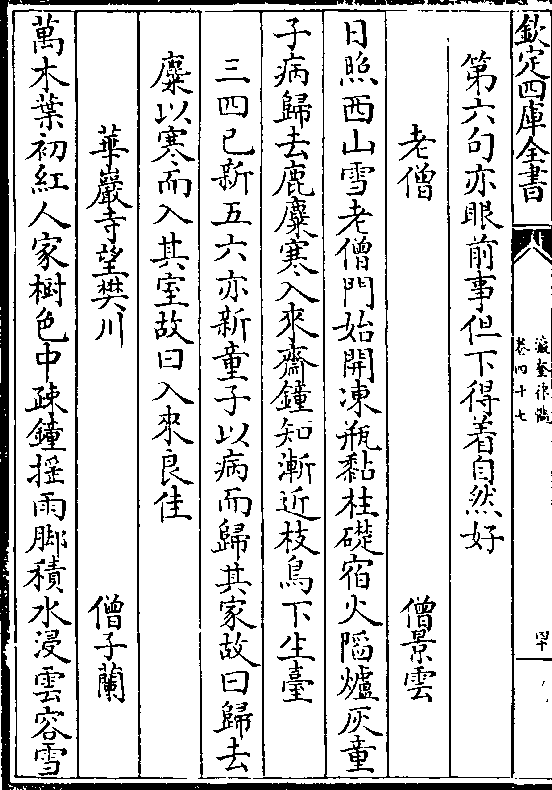 欽定四庫全書
瀛奎律髓
卷四十七
第六句亦眼前事但下得着自然好
老僧 僧景雲
日照西山雪老僧門始開凍瓶黏柱礎宿火陷爐灰童
子病歸去鹿麛寒入來齋鐘知漸近枝鳥下生臺
三四已新五六亦新童子以病而歸其家故曰歸去
麛以寒而入其室故曰入來良佳
華巖寺望樊川 僧子蘭
萬木葉初紅人家樹色中疎鐘搖雨脚積水浸雲容雪